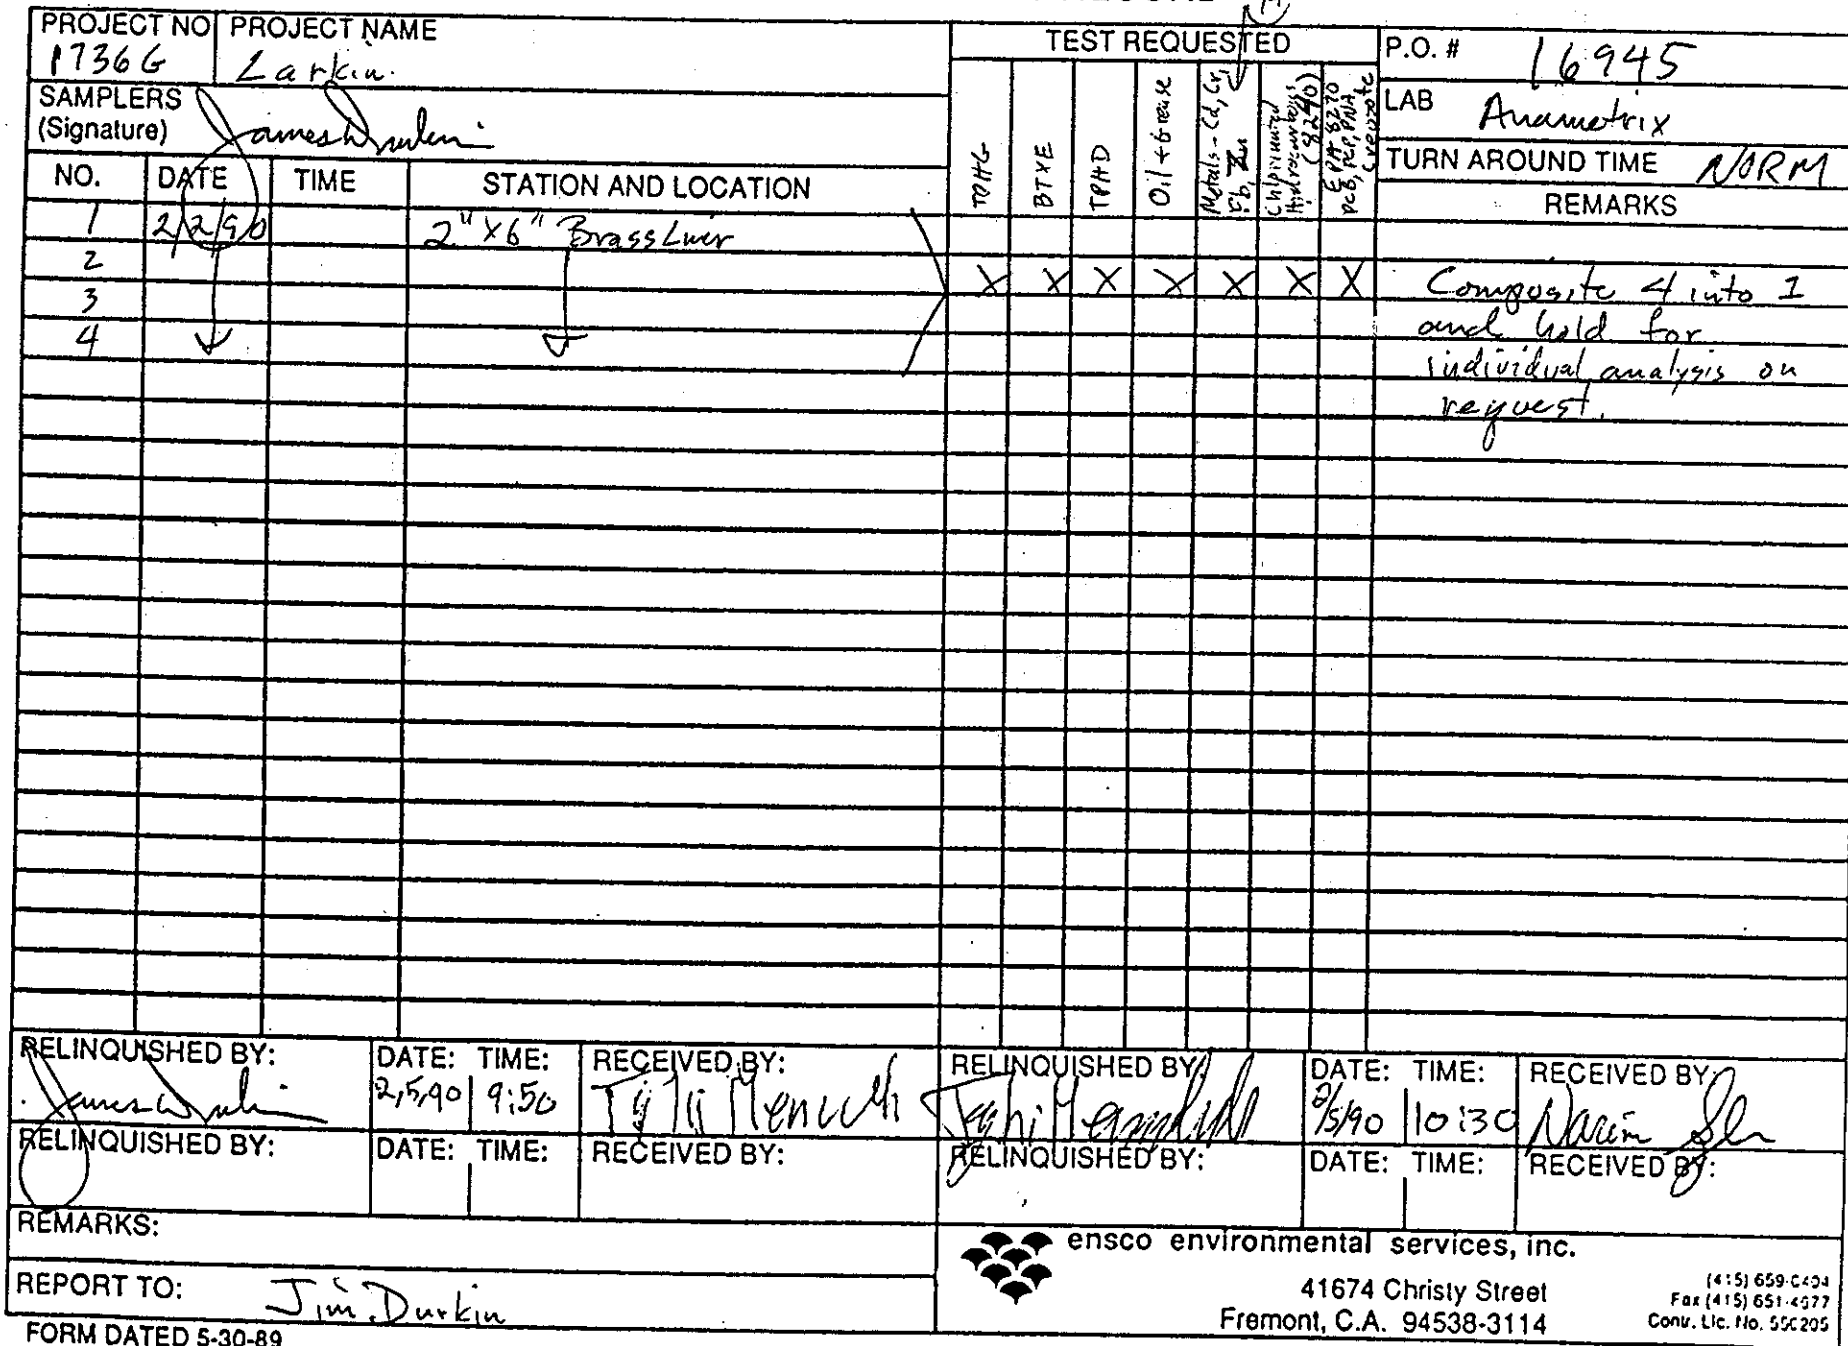 PROJECT NO PROJECT NAME
1736G Larkin.
TEST REQUESTED
P.O. # 16945
SAMPLERS
(Signature)
LAB Anametrix
TURN AROUND TIME NORM
NO. DATE TIME STATION AND LOCATION
TPHG
BTXE
TPHD
Oil + Grease
Metals - Cd, Cr,
Pb,
Chlorinated
Hydrocarbons
(8240)
EPA 8270
PCB, PCP, PNA,
Creosote
REMARKS
1 2/2/90 2" X 6" Brass Liner
2
X X X X X X X
3
4
Composite 4 into 1
and hold for
individual analysis on
request.
RELINQUISHED BY: DATE: TIME: RECEIVED BY:
2,5,90 9:50
RELINQUISHED BY: DATE: TIME: RECEIVED BY:
2/5/90 10:30
RELINQUISHED BY: DATE: TIME: RECEIVED BY:
RELINQUISHED BY: DATE: TIME: RECEIVED BY:
REMARKS:
REPORT TO: Jim Durkin
FORM DATED 5-30-89
ensco environmental services, inc.
41674 Christy Street
Fremont, C.A. 94538-3114
Fax (415)
Contr. Lic. No.